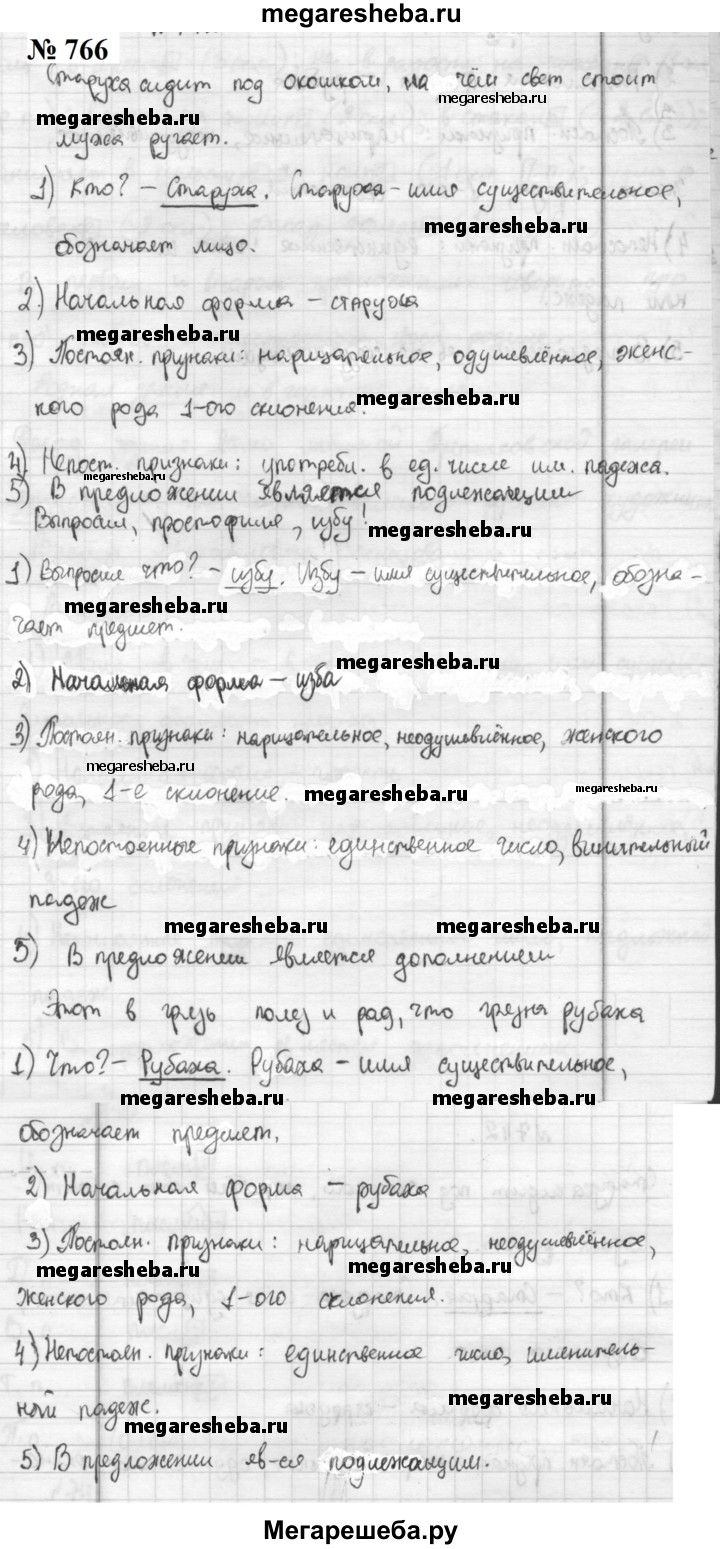 megaresheba.ru
№ 766
Старуха сидит под окошком, на чём свет стоит
megaresheba.ru
megaresheba.ru
мужа ругает.
1) Кто? – Старуха. Старуха – имя существительное,
megaresheba.ru
обозначает лицо.
2) Начальная форма – старуха
megaresheba.ru
3) Постоян. признаки: нарицательное, одушевлённое, женс-
кого рода 1-ого склонения.
megaresheba.ru
4) Непост. признаки: употребл. в ед. числе им. падежа.
megaresheba.ru
5) В предложении является подлежащим
Выпроси, простофиля, избу!
megaresheba.ru
1) Выпроси что? – избу. Избу – имя существительное, обозна-
megaresheba.ru
чает предмет.
megaresheba.ru
2) Начальная форма – изба
3) Постоян. признаки: нарицательное, неодушевлённое, женского
megaresheba.ru
рода, 1-е склонение.
megaresheba.ru
megaresheba.ru
4) Непостоенные признаки: единственное число, винительный
падеж
megaresheba.ru
megaresheba.ru
5) В предложении является дополнением
Этот в грязь полез и рад, что грязна рубаха
1) Что? – Рубаха. Рубаха – имя существительное,
megaresheba.ru
megaresheba.ru
обозначает предмет.
2) Начальная форма – рубаха
3) Постоян. признаки: нарицательное, неодушевлённое,
megaresheba.ru
megaresheba.ru
женского рода, 1-ого склонения.
4) Непостоян. признаки: единственное число, именитель-
ный падеж.
megaresheba.ru
megaresheba.ru
5) В предложении яв-ся подлежащим.
Мегарешеба.ру